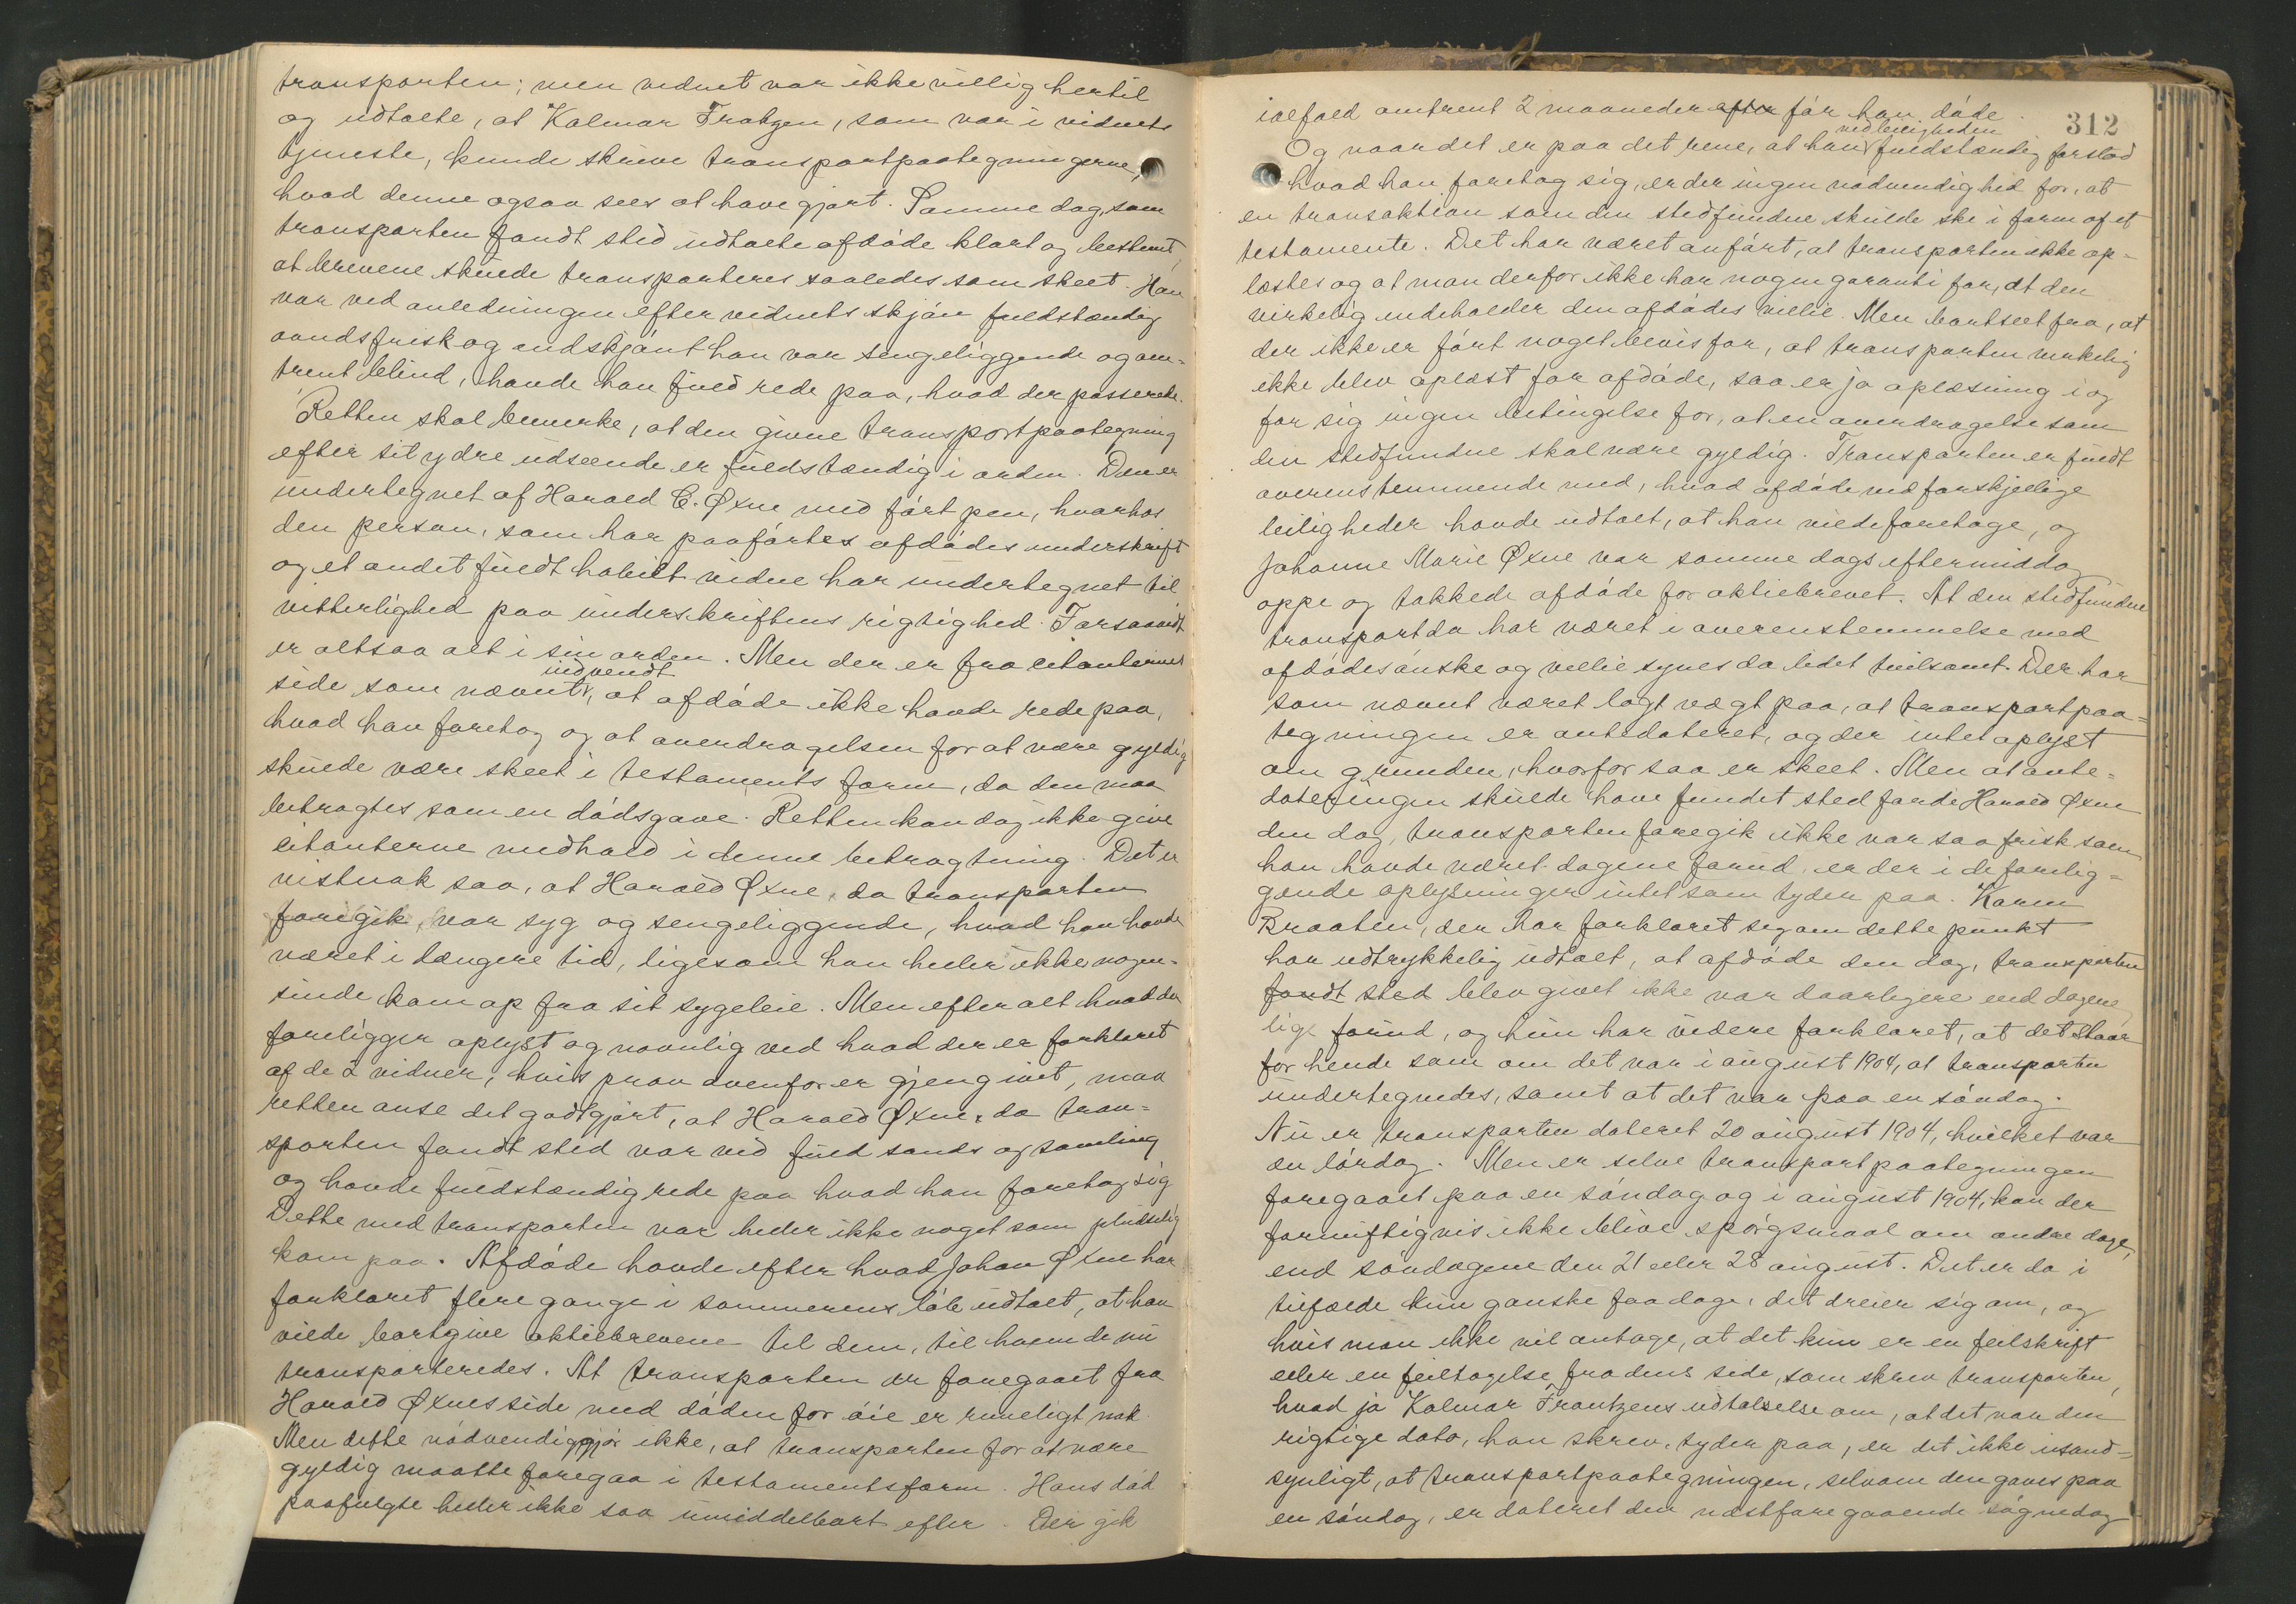 transporten; men vidnet var ikke villig hertil
og udtalte, at Kalmar Frantzen, som var i vidnets
tjeneste, kunde skrive transportpaategningerne,
hvad denne ogsaa sees at have gjort. Samme dag, som
transporten fandt sted udtalte afdöde klart og bestemt,
at brevene skulde transporteres saaledes som skeet. Han
var ved anledningen efter vidnets skjön fuldstændig
aandsfrisk og endskjönt han var sengeliggende og om-
trent blind, havde han fuld rede paa, hvad der passerede.
Retten skal bemerke, at den givne transportpaategning
efter sit ydre udseende er fuldstændig i orden. Den er
undertegnet af Harald C. Øxne med fört pen, hvorhos
den person, som har paaförtes afdödes underskrift
og et andet fuldt habilt vidne har undertegnet til
vitterlighed paa underskriftens rigtighed. Forsaavidt
er altsaa alt i sin orden. Men der er fra citanternes
indvendt
side som nævnt, at afdöde ikke havde rede paa,
hvad han foretog og at overdragelsen for at være gyldig
skulde være skeet i testaments form, da den maa
betragtes som en dödsgave. Retten kan dog ikke give
citanterne medhold i denne betragtning. Det er
vistnok saa, at Harald Øxne, da transporten
foregik, var syg og sengeliggende, hvad han havde
været i længere tid, ligesom han heller ikke nogen-
sinde kom op fra sit sygeleie. Men efter alt hvad der
foreligger oplyst og navnlig ved hvad der er forklaret
af de 2 vidner, hvis prov ovenfor er gjengivet, maa
retten anse det godtgjort, at Harald Øxne, da tran-
sporten fandt sted var ved fuld sands og samling
og havde fuldstændig rede paa hvad han foretog sig
Dette med transporten var heller ikke noget som pludselig
kom paa. Afdöde havde efter hvad Johan Øxne har
forklaret flere gange i sommerens löb udtalt, at han
vilde bortgive aktiebrevene til dem, til hvem de nu
transporteredes. At transporten er foregaaet fra
Harald Øxnes side med döden for öie er rimeligt nok.
Men dette nödvendiggjör ikke, at transporten for at være
gyldig maatte foregaa i testamentsform. Hans död
paafulgte heller ikke saa umiddelbart efter. Der gik
312
ialfald omtrent 2 maaneder efterför han döde.
ved leiligheden
Og naar det er paa det rene, at han fuldstændig forstod
hvad han foretog sig, er der ingen nödvendighed for, at
en transaktion som den stedfundne skulde ske i form af et
testamente. Det har været anfört, at transporten ikke op-
læstes og at man derfor ikke har nogen garanti for, at den
virkelig indeholder den afdödes villie. Men bortseet fra, at
der ikke er fört noget bevis for, at transporten virkelig
ikke blev oplæst for afdöde, saa er jo oplæsning i og
for sig ingen betingelse for, at en overdragelse som
den stedfundne skal være gyldig. Transporten er fuldt
overenstemmende med, hvad afdöde ved forskjellige
leiligheder havde udtalt, at han vilde foretage, og
Johanne Marie Øxne var samme dags eftermiddag
oppe og takkede afdöde for aktiebrevet. At den stedfundne
transport da har været i overenstemmelse med
afdödes önske og villie synes da lidet tvilsomt. Der har
som nævnt været lagt vægt paa, at transportpaa-
tegningen er antedateret, og der intet oplyst
om grunden, hvorfor saa er skeet. Men at ante-
dateringen skulde have fundet sted fordi Harald Øxne
den dag, transporten foregik ikke var saa frisk som
han havde været dagene forud, er der i de forelig-
gende oplysninger intet som tyder paa. Karen
Braaten, der har forklaret seg om dette punkt
har udtrykkelig udtalt, at afdöde den dag, transporten
fandt sted blev givet ikke var daarligere end dagene
lige forud, og hun har videre forklaret, at det staar
for hende som om det var i august 1904, at transporten
undertegnedes, samt at det var paa en söndag.
Nu er transporten dateret 20 august 1904, hvilket var
en lördag. Men er selve transportpaategningen
foregaaet paa en söndag og i august 1904, kan der
fornuftigvis ikke blive spörgsmaal om andre dage,
end söndagene den 21 eller 28 august. Det er da i
tilfælde kun ganske faa dage, det dreier sig om, og
hvis man ikke vil antage, at det kun er en feilskrift
eller en feiltagelse fra dens side, som skrev transporten,
hvad jo Kalmar Frantzens udtalselse om, at det var den
rigtige dato, han skrev, tyder paa, er det ikke usand-
synligt, at transportpaategningen, selvom den gaves paa
en söndag, er dateret den næstforegaaende sögnedag